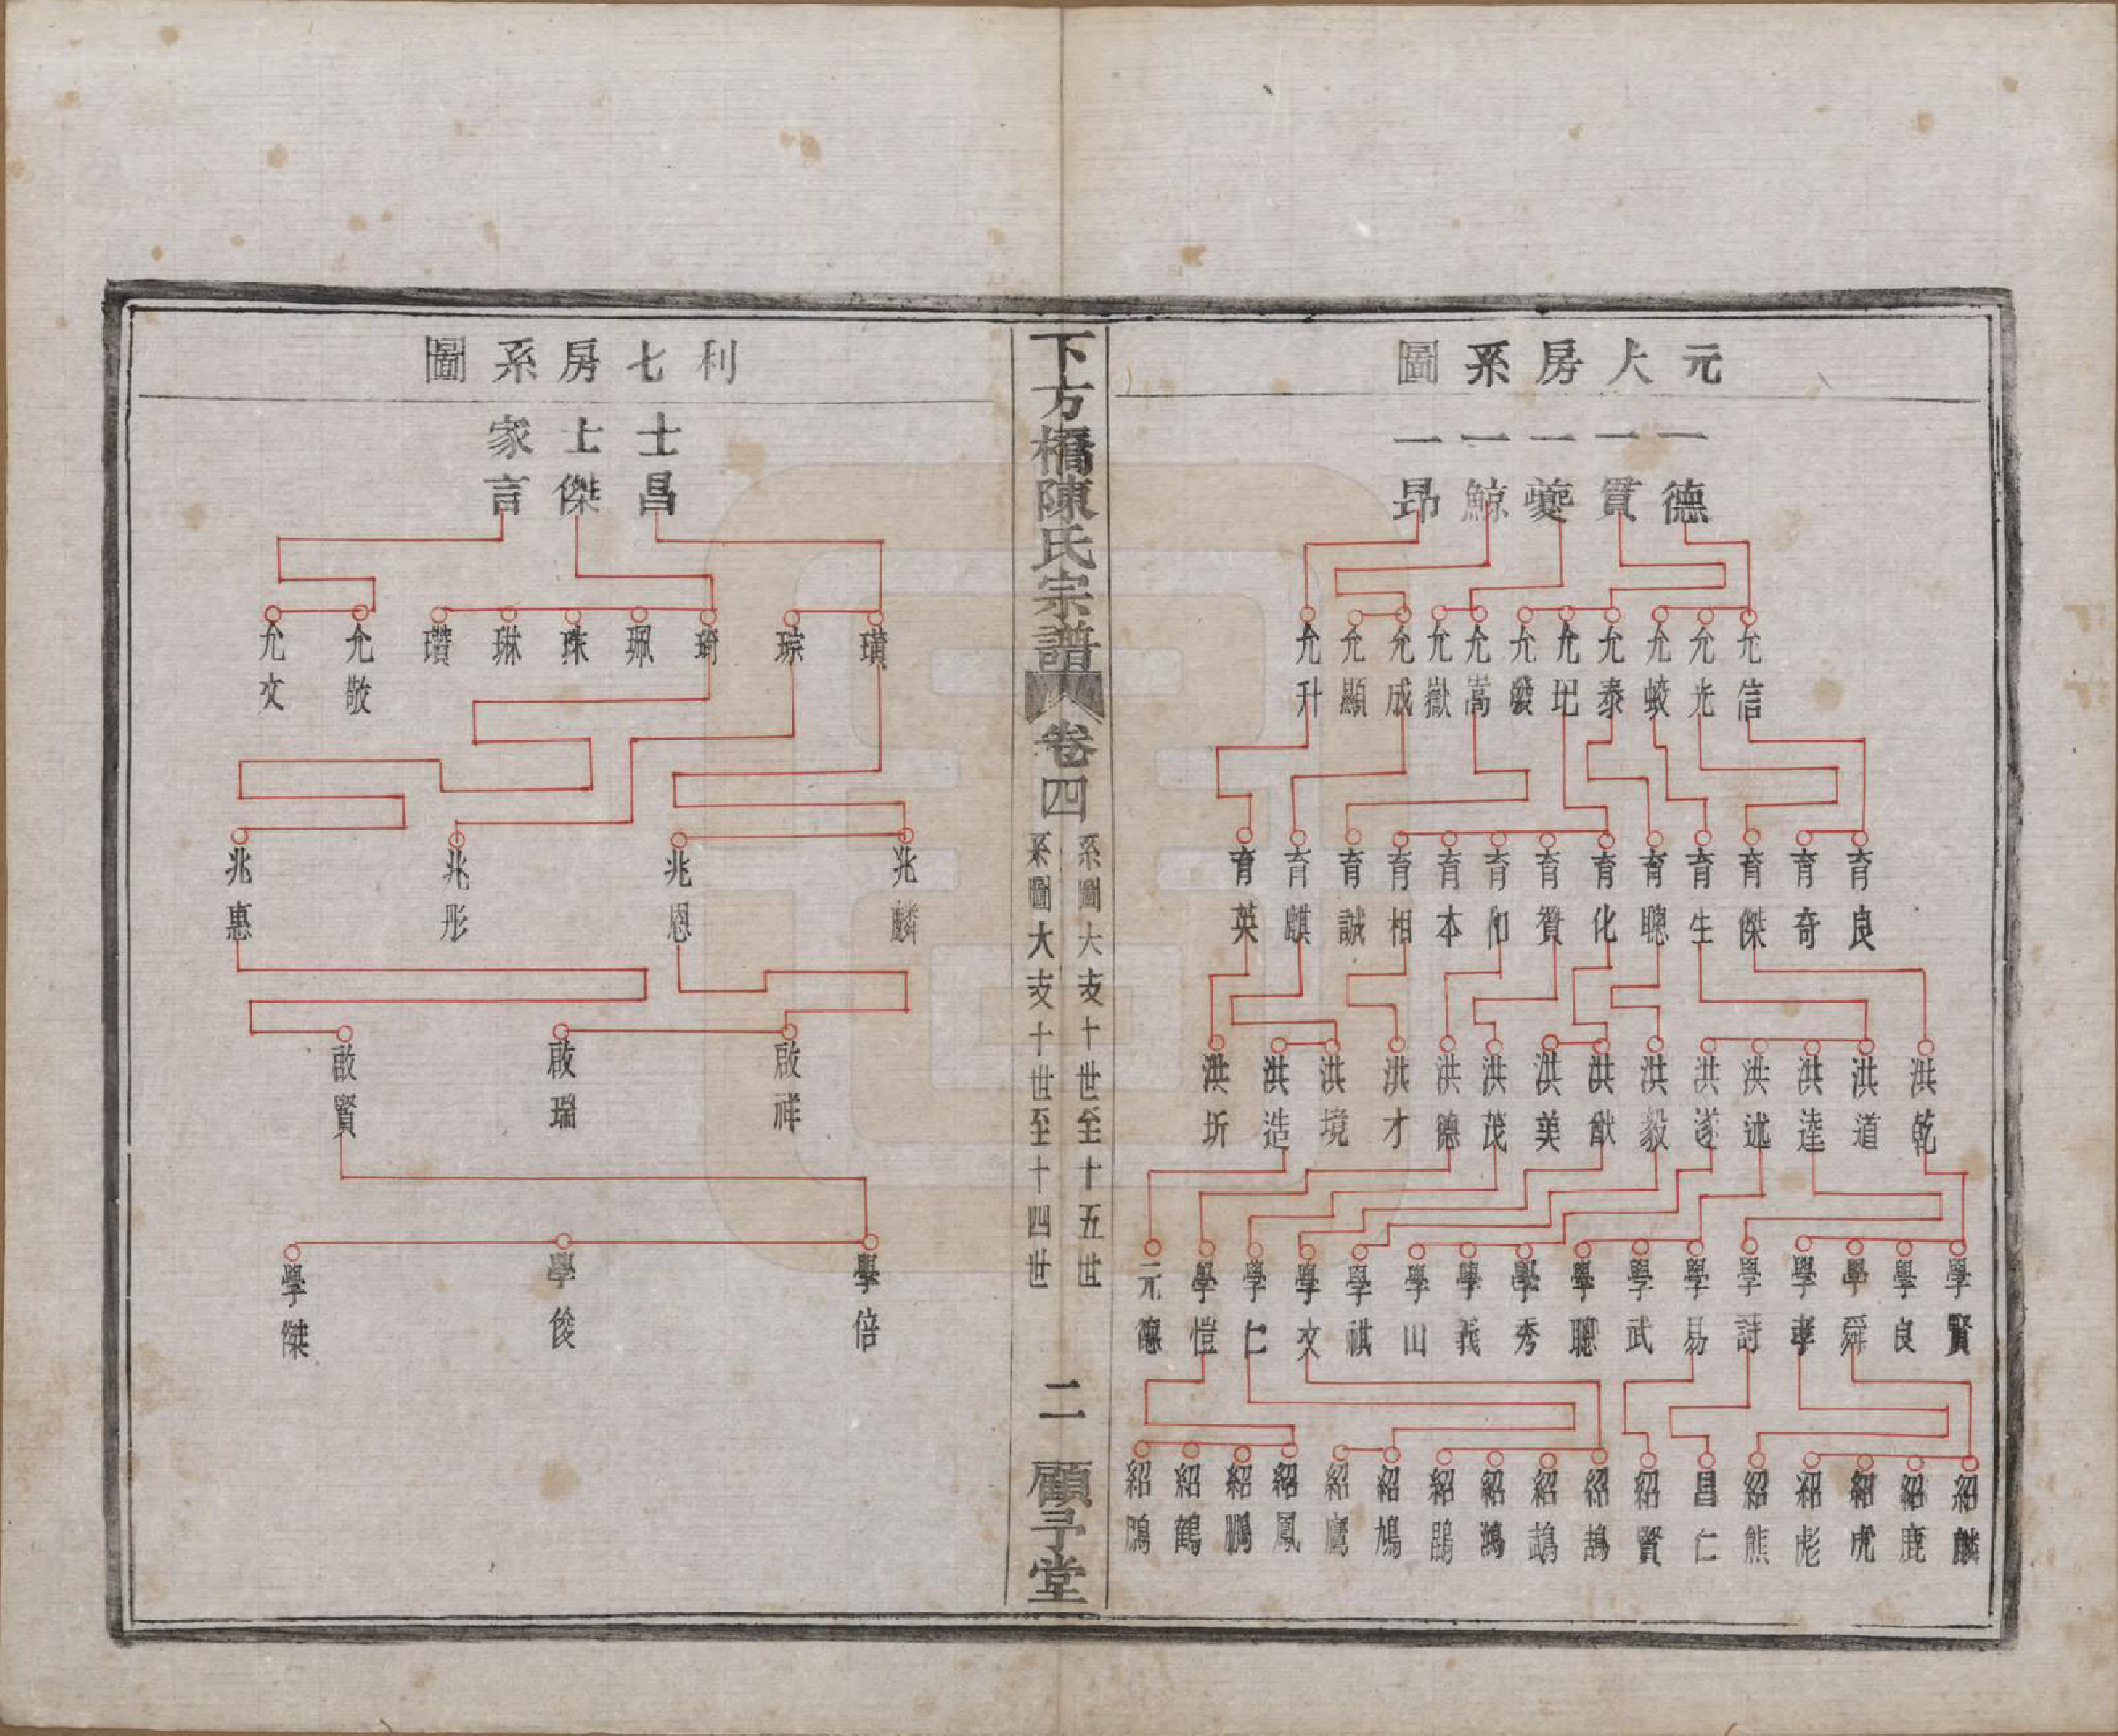 元大房系圖
一德
一貫
一夔
一鯨
一昂
允信
允光
允蛟
允泰
允圯
允發
允嵩
允嶽
允成
允顯
允升
育良
育奇
育傑
育生
育聰
育化
育贊
育和
育本
育相
育誠
育麒
育英
洪乾
洪道
洪達
洪述
洪遂
洪毅
洪猷
洪美
洪茂
洪德
洪才
洪境
洪造
洪圻
學賢
學良
學舜
學孝
學詩
學易
學武
學聰
學秀
學義
學山
學祺
學文
學仁
學愷
元德
紹麟
紹鹿
紹虎
紹彪
紹熊
昌仁
紹賢
紹鵠
紹鵡
紹鴻
紹
紹鳩
紹鷹
紹鳳
紹鵬
紹鶴
紹
下方橋陳氏宗譜
卷四
系圖大支十世至十五世
系圖大支十世至十四世
二
顧予堂
利七房系圖
士昌
士傑
家言
璜
琮
琦
珮
珠
琳
瓚
允敬
允文
兆麟
兆恩
兆彤
兆惠
啟祥
啟瑞
啟賢
學倍
學俊
學傑